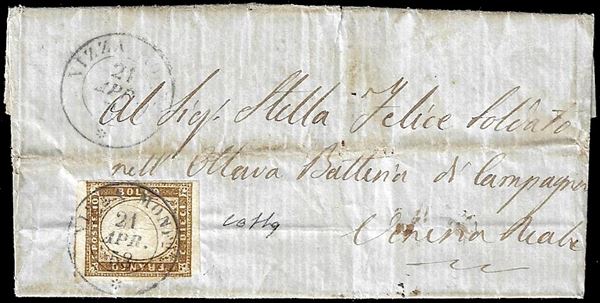 VIZZA
21
APR
Al Sig. Stella Felice Soldato
nell' Ottava Batteria di Campagna
Veneria Reale
BOLLO
FRANCO
POSTE
MOND
21
APR.